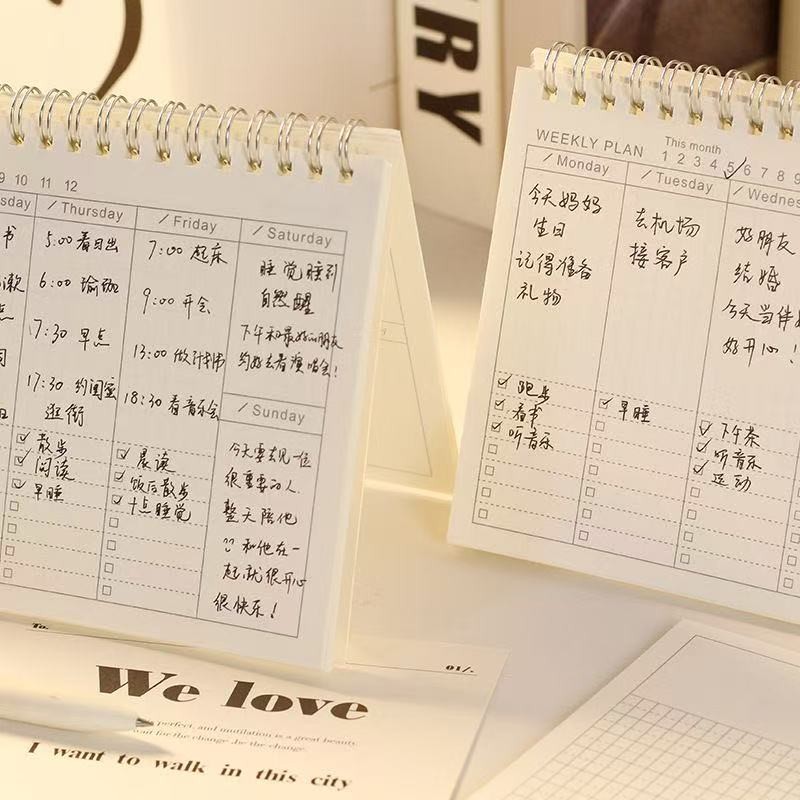 RY
9 10 11 12
Thursday
5:00 看日出
6:00 瑜伽
7:30 早点
17:30 约闺蜜
逛街
散步
阅读
早睡
Friday
7:00 起床
9:00 开会
13:00 做计划书
18:30 看音乐会
晨读
饭后散步
十点睡觉
Saturday
睡觉睡到
自然醒
下午和最好的朋友
约好去看演唱会!
Sunday
今天要去见一位
很重要的人
整天陪他
和他在一
起就很开心
很快乐!
WEEKLY PLAN
This month
1 2 3 4 5 6 7 8 9
Monday
今天妈妈
生日
记得准备
礼物
跑步
看书
听音乐
Tuesday
去机场
接客户
早睡
Wednes
好朋友
结婚
今天当伴
好开心!
下午茶
听音乐
运动
To.
01/.
We love
perfect, and mutilation is a great beauty.
wait for the change .be the change.
I want to walk in this city